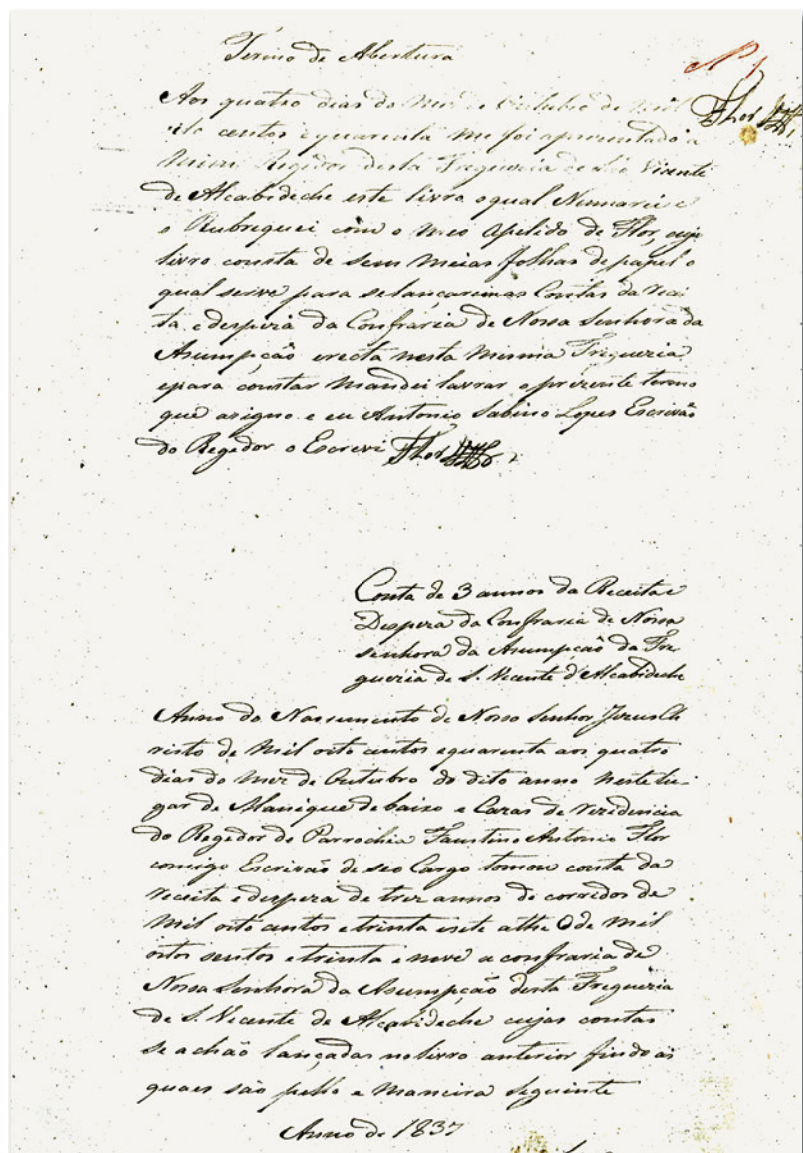 Termo de Abertura
Nº 1
Flor
Aos quatro dias do mez de Outubro de mil
oito centos equarenta me foi aprezentado a
mim Regidor desta Freguezia de São Vicente
de Alcabideche este livro oqual Numarei e
o Rubrequei com o meo apelido de Flor, cujo
livro consta de sem meias folhas de papel o
qual serve para selancaremas Contas da recei
ta edespeza da Confraria de Nossa Senhora da
Asumpção erecta nesta mesma Freguezia
epara constar mandei lavrar oprezente termo
que asigno e eu Antonio Sabino Lopes Escrivão
do Regedor o Escrevi Flor
Conta de 3 annos da Receita e
Despeza da Confraria de Nossa
senhora da Asumpção da Fre
guezia de S. Vicente d'Alcabideche
Anno do Nassimento de Nosso Senhor Jezus Ch
risto de mil oito centos equarenta aos quatro
dias do mez de Outubro do dito anno neste lu-
gar de Manique de baixo e Cazas de rezidencia
do Regedor de Parrochia Faustino Antonio Flor
comigo Escrivão de seo Cargo tomou conta da
receita edespeza de trez annos de corridos de
mil oito centos etrinta esete athe o de mil
oitos sentos etrinta e nove a confraria de
Nossa Senhora da Asumpção desta Freguezia
de S. Vicente de Alcabideche cujas contas
se achão lançadas nolivro anterior findo as
quaes são pello a maneira seguinte
Anno de 1837